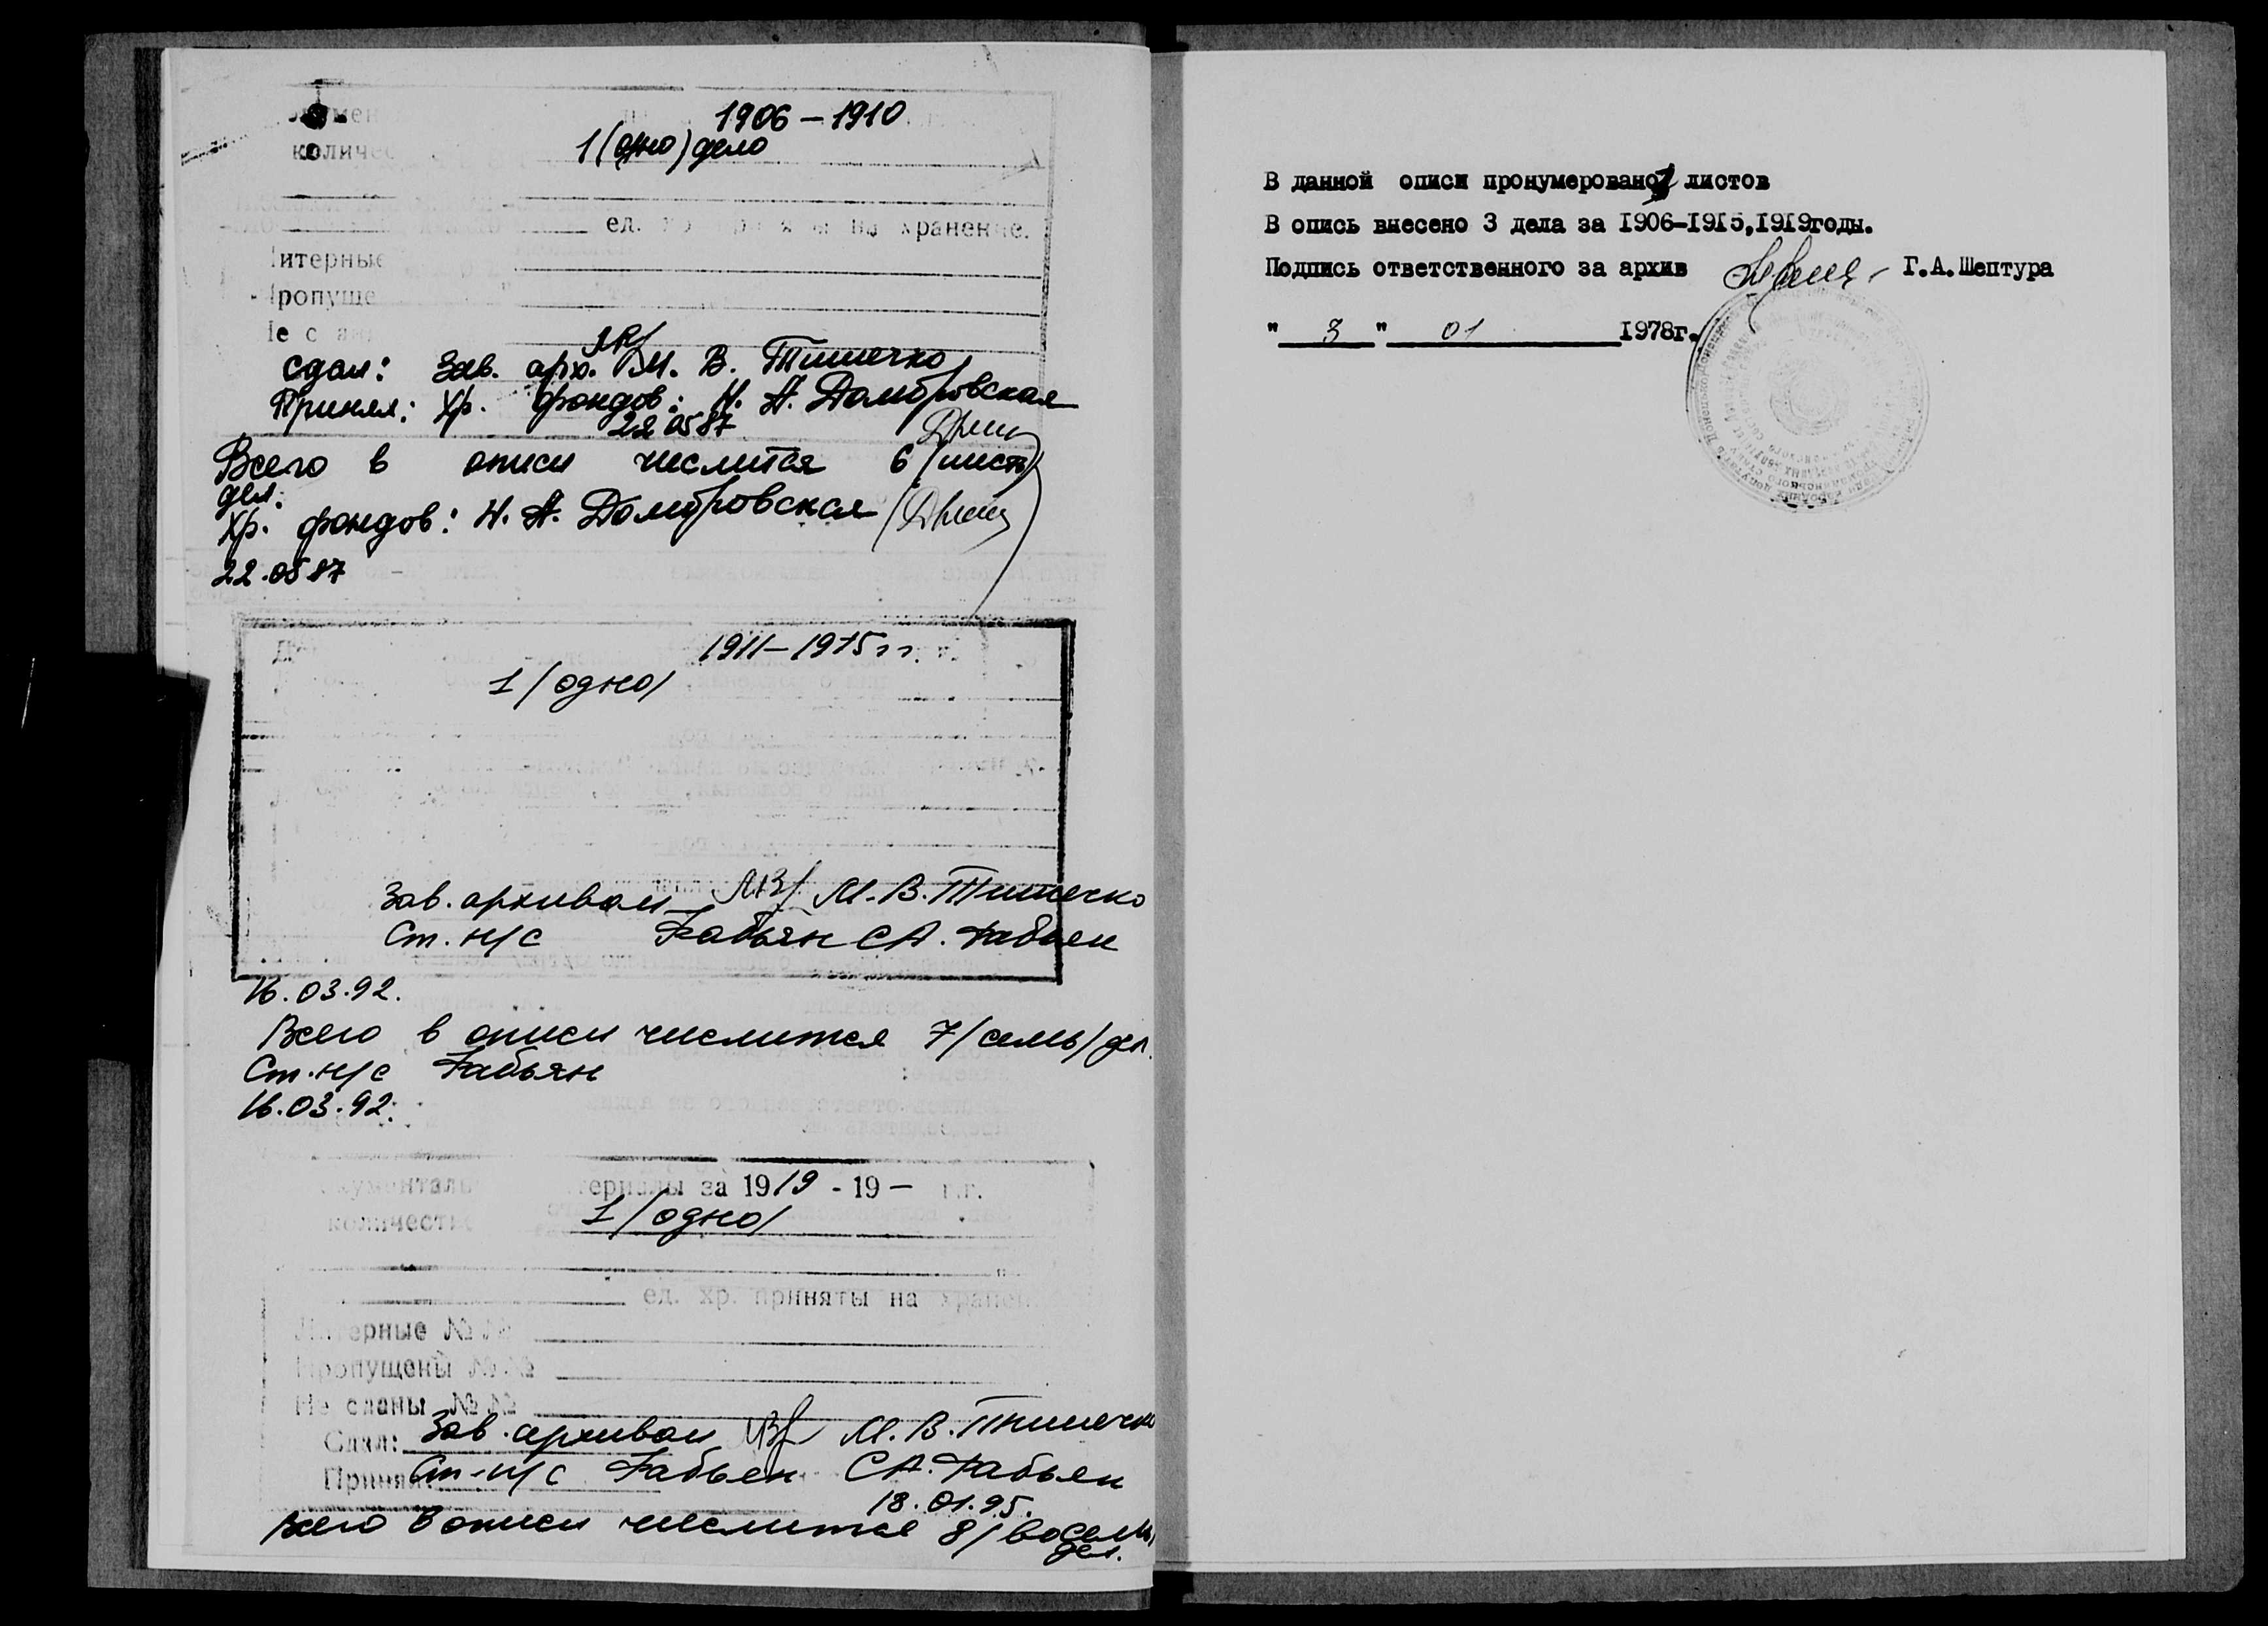 1906 – 1910
количес
1 (одно) дело
ед. хранение.
Литерные
Пропуще
Не с
Сдал: Зав. арх. М. В. Тимечко
Принял: Хр. фондов: Н. А. Домбровская
22 05 87
Всего в описи числится 6 (шесть)
дел.
Хр. фондов: Н. А. Домбровская
22.05 87
1911 – 1915 гг.
1 /одно/
Зав. архивом М. В. Тимечко
Ст. н/с Бабьян С А. Бабьян
16.03.92.
Всего в описи числится 7 /семь/ дел.
Ст. н/с Бабьян
16.03.92.
документаль териалы за 1919 - 19 – г.г.
количеств 1 /одно/
ед. хр. приняты на хранен
Литерные №№
Пропущены №№
Не сланы №№
Сдал: Зав. архивом М. В. Тимечко
Принял Ст. н/с Бабьян С А. Бабьян
18.01.95.
Всего в описи числится 8 /восемь/
дел.
В данной описи пронумеровано листов
В опись внесено 3 дела за 1906–1915,1919годы.
Подпись ответственного за архив Г.А.Шептура
" 3 " 01 1978г.